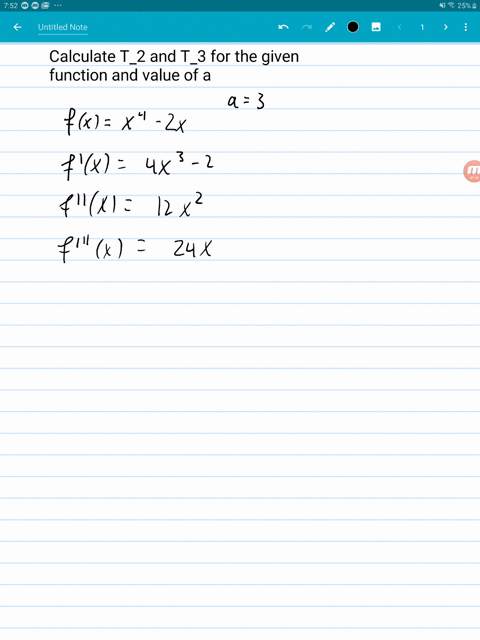 7:52 25%
Untitled Note 1
Calculate T_2 and T_3 for the given
function and value of a
a = 3
f(x) = x⁴ - 2x
f'(x) = 4x³ - 2
f''(x) = 12x²
f'''(x) = 24x